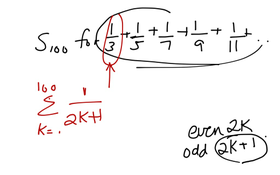 S₁₀₀ for 1/3 + 1/5 + 1/7 + 1/9 + 1/11 + ...
100
Σ 1/(2K+1)
K=.
even 2K
odd 2K+1